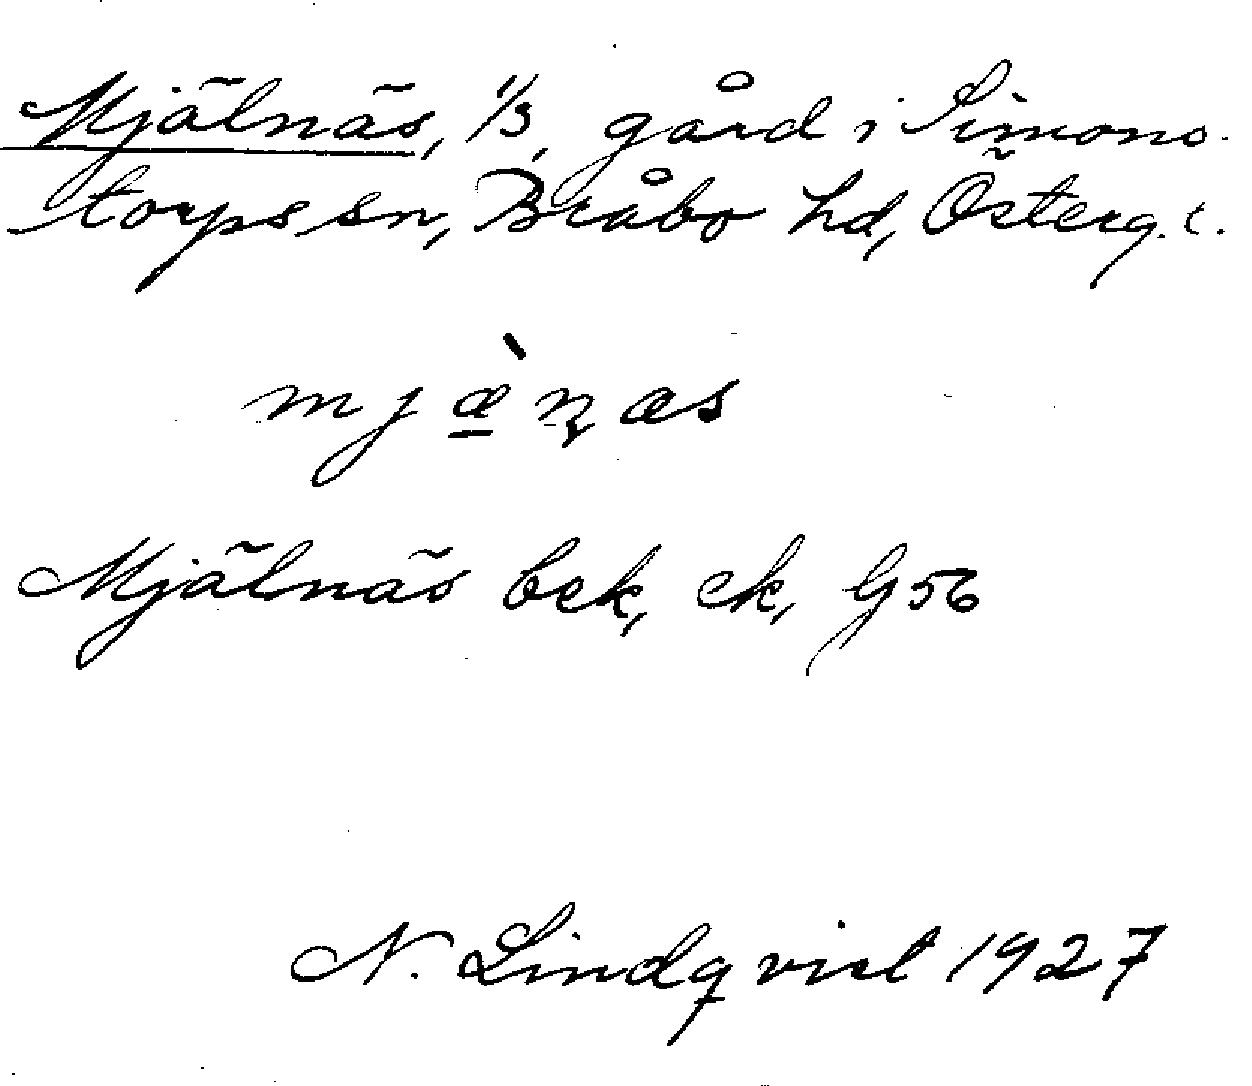 Mjälnäs, 1/3, gård i Simons-
torps sn, Bråbo hd, Österg. l.
mjæ̠̀ɳæs
Mjälnäs bek, ek, G 56
N. Lindqvist 1927